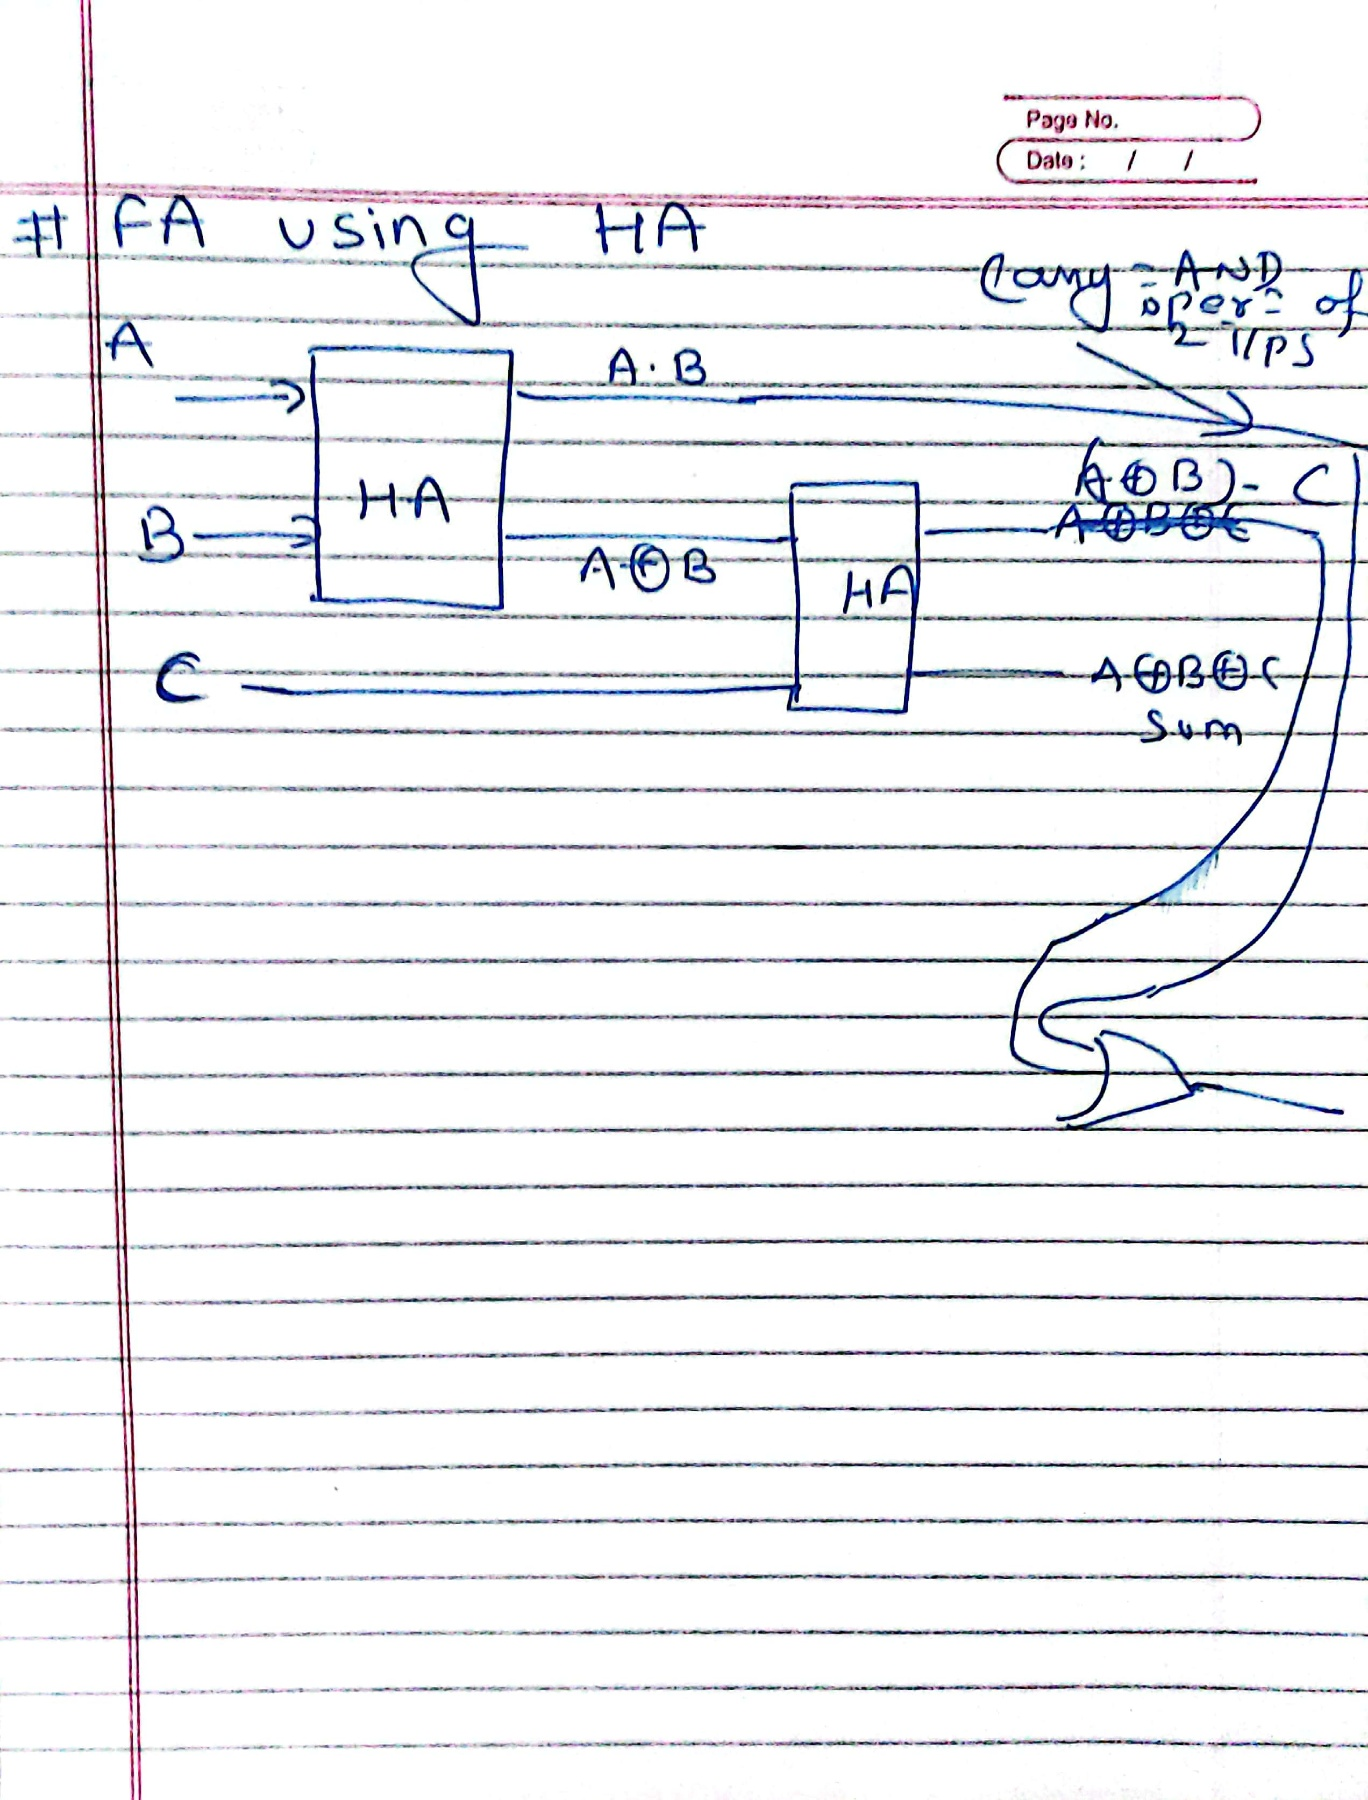 Page No.
Date : / /
# FA using HA
Carry = AND
oper= of
2 I/PS
A
A·B
(A⊕B)- C
HA
A⊕B⊕C
B
A⊕B
HA
C
A⊕B⊕C
Sum